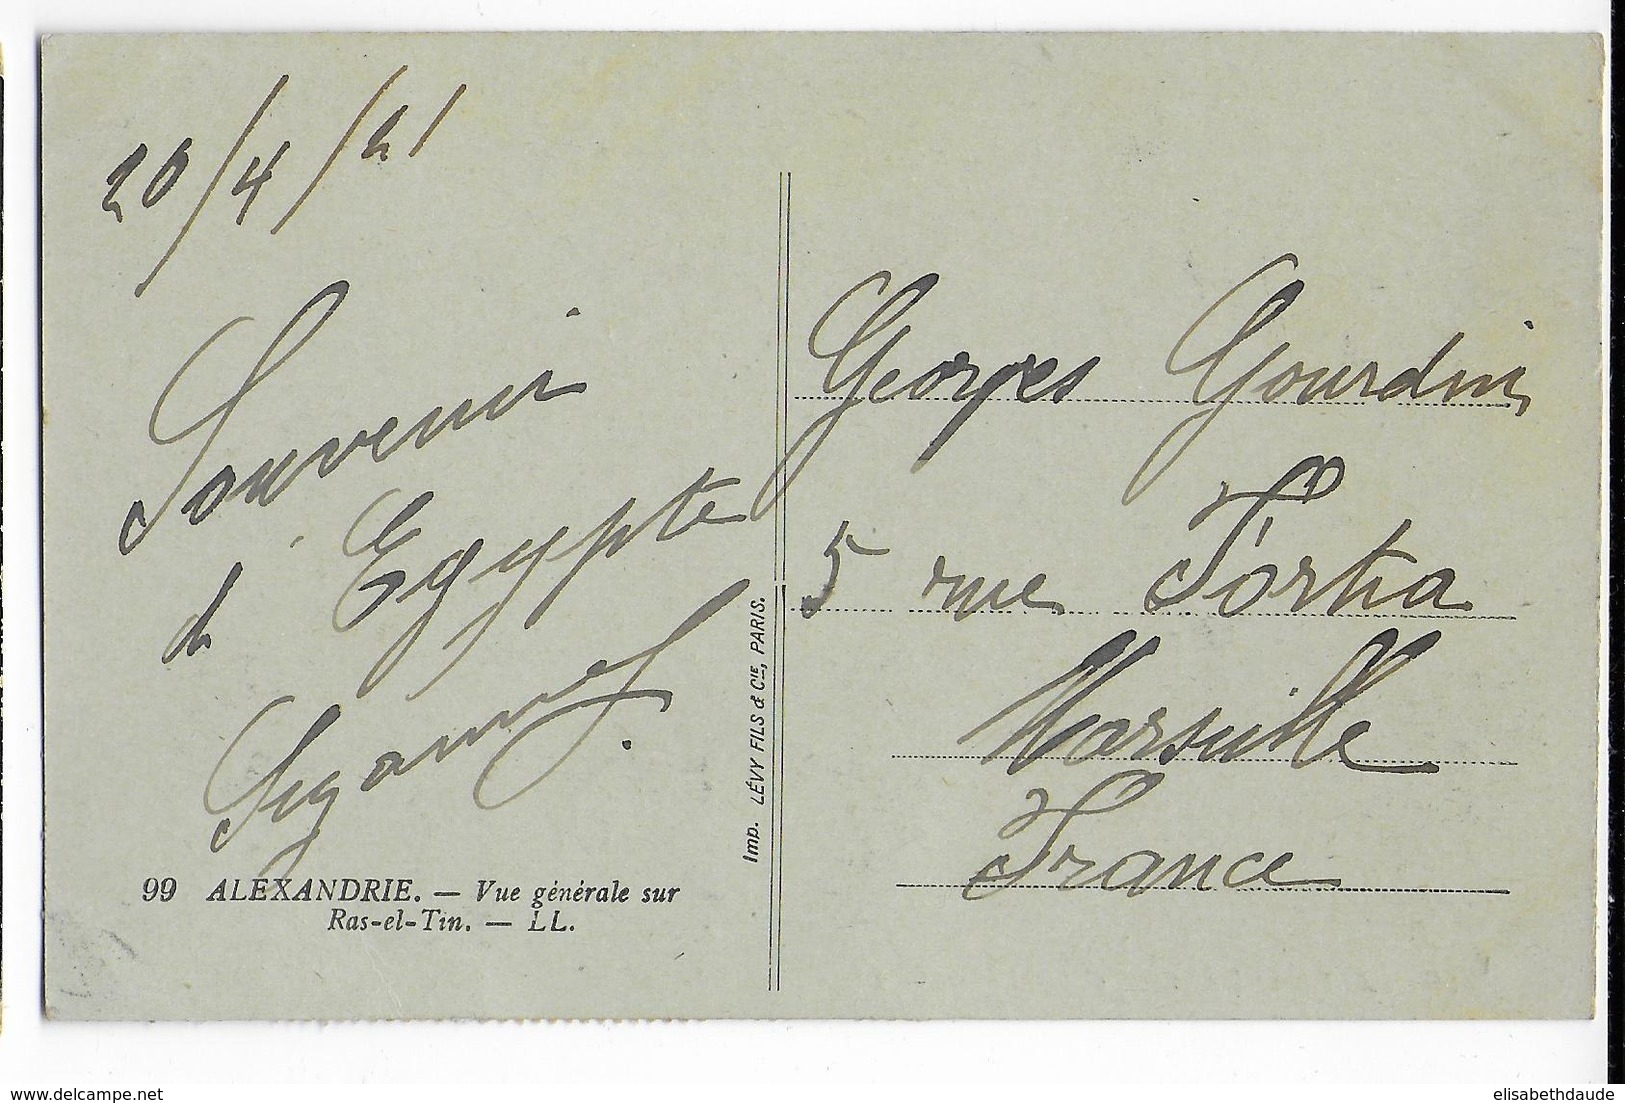 20/4/21
Souvenir
d'Egypte
99 ALEXANDRIE. — Vue générale sur
Ras-el-Tin. — LL.
Imp. LÉVY FILS & CIE, PARIS.
Georges Gourdin,
5 rue Fortia
Marseille
France
elisabethdaude